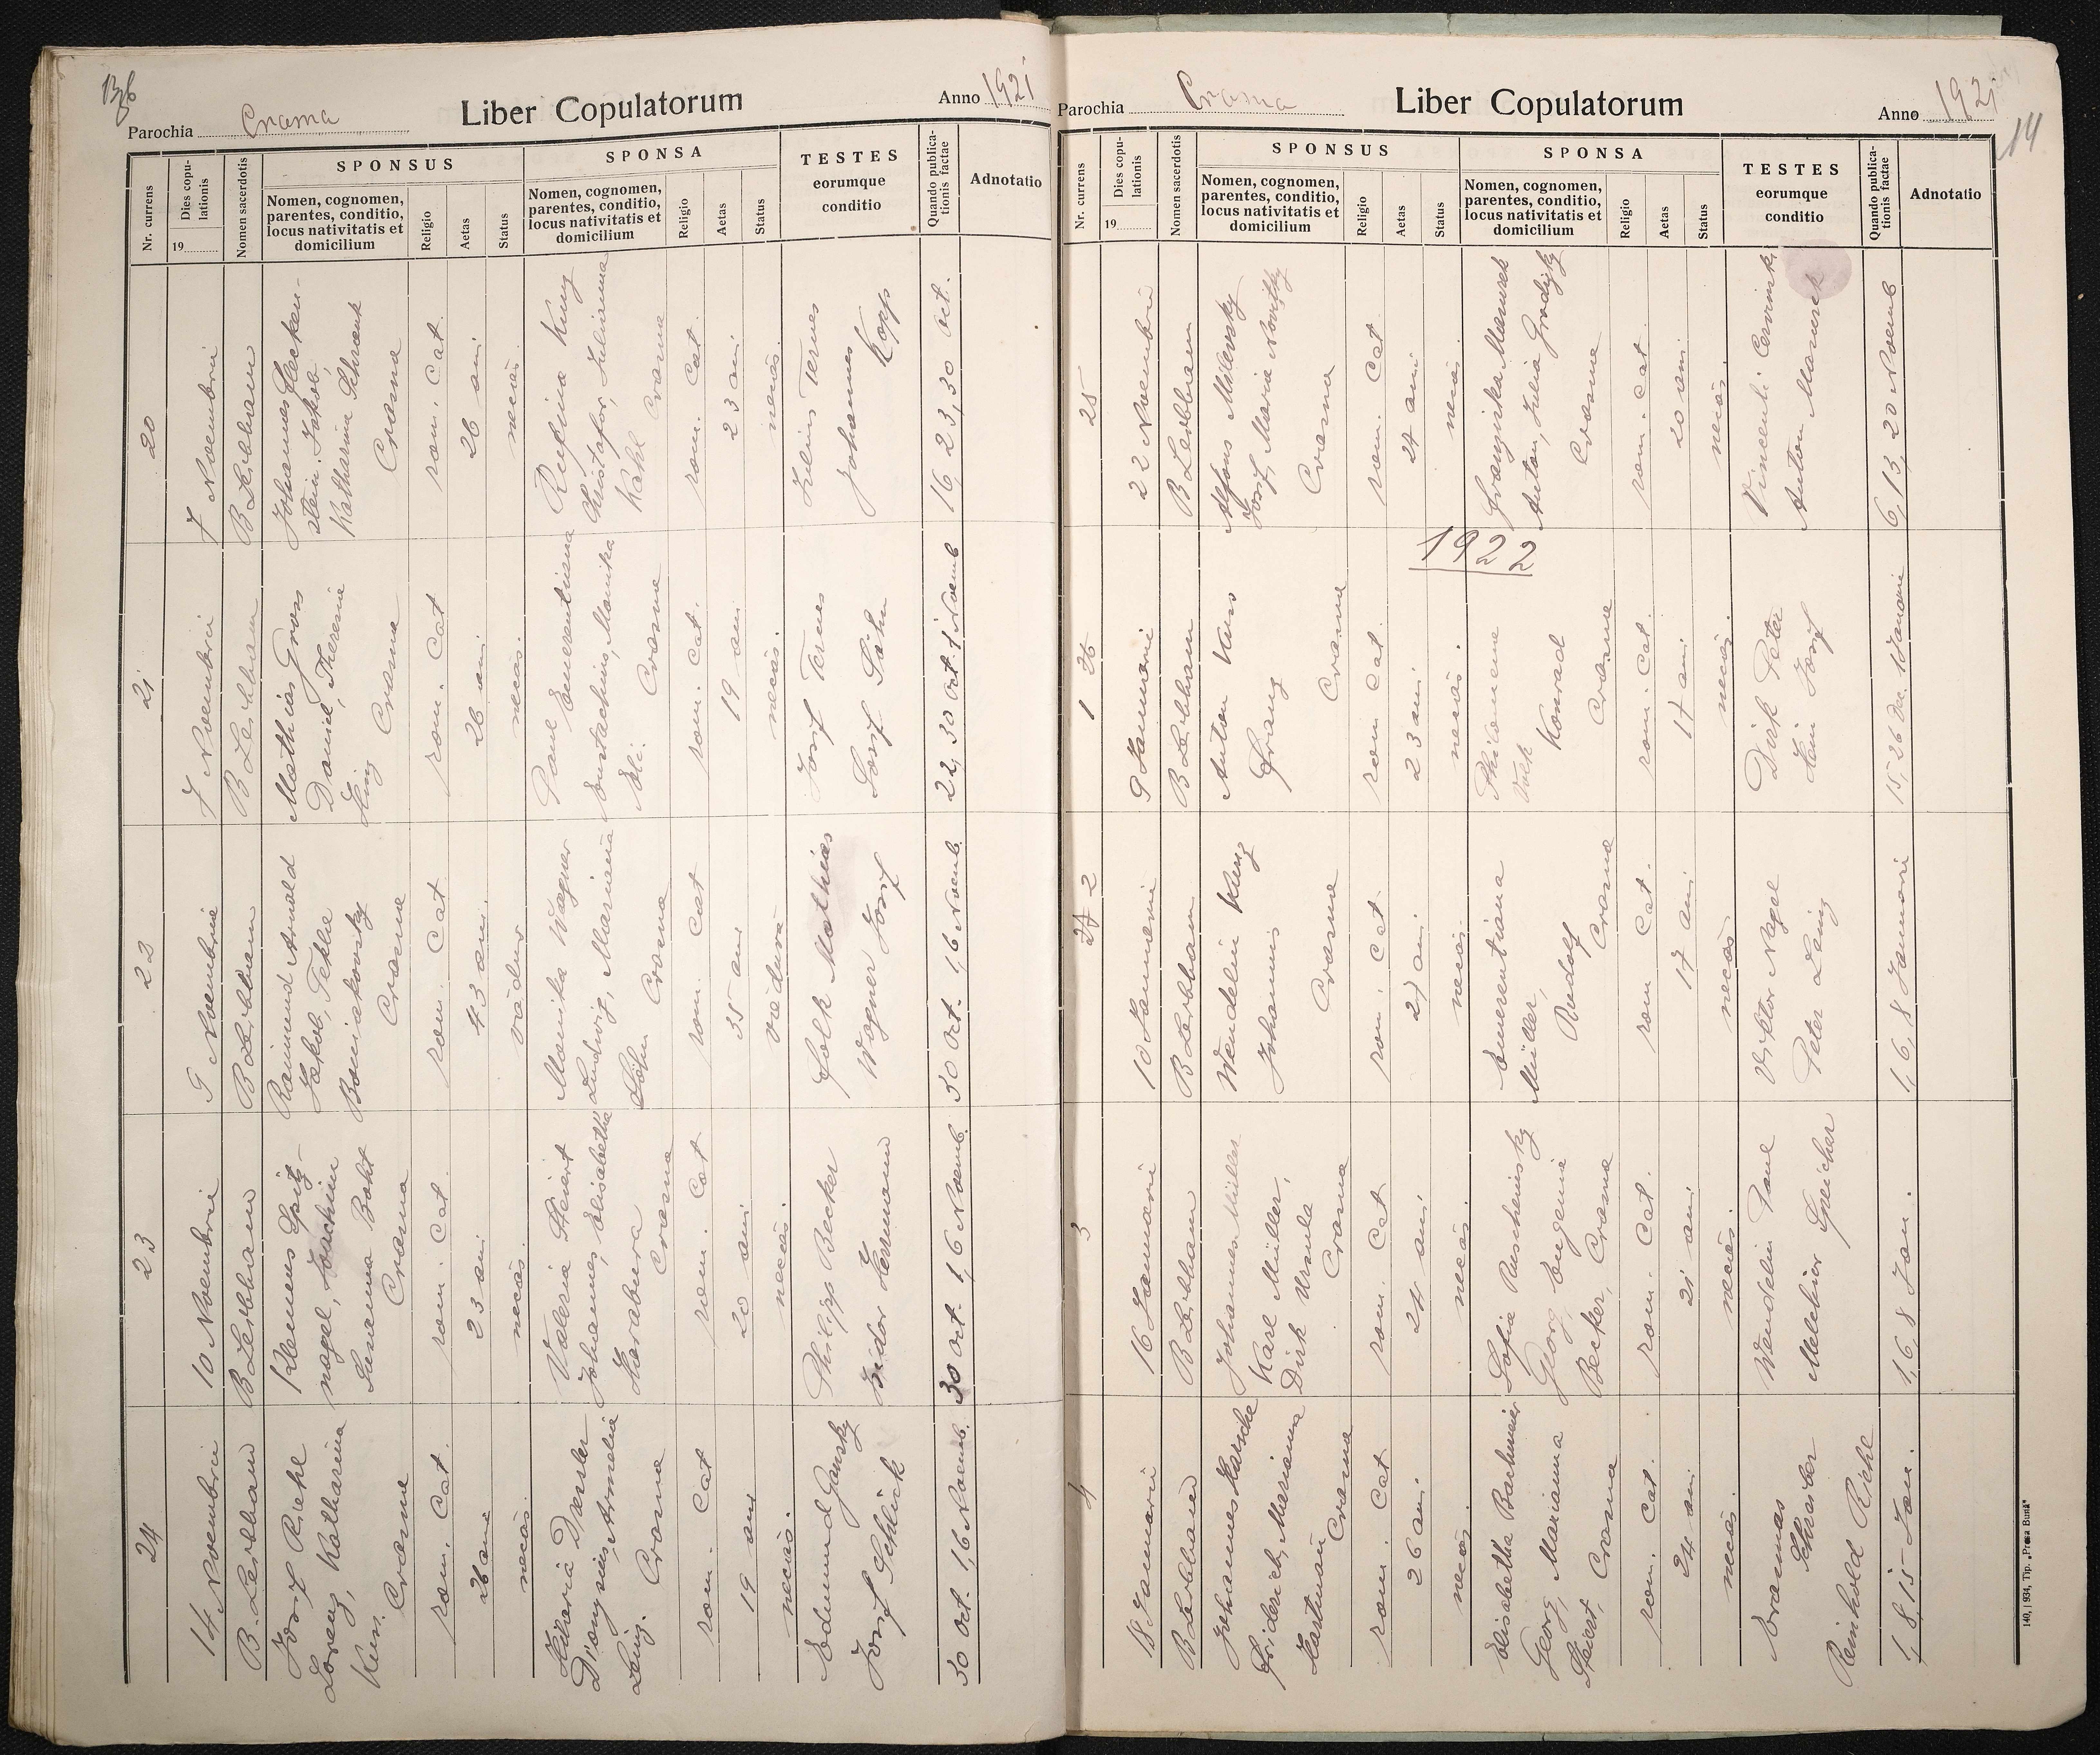 136
Parochia Crasna
Liber Copulatorum
Anno 1921
Nr. currens
Dies copulationis
19
Nomen sacerdotis
SPONSUS
Nomen, cognomen,
parentes, conditio,
locus nativitatis et
domicilium
Religio
Aetas
Status
SPONSA
Nomen, cognomen,
parentes, conditio,
locus nativitatis et
domicilium
Religio
Aetas
Status
TESTES
eorumque
conditio
Quando publica-
tionis factae
Adnotatio
20
7 Noembrii
B Leibham
Johannes Hecken-
stein, Jakob,
Katharina Schrenk
Crasna
rom. Cat.
26 ani
necăs.
Rufina King
Christofor, Julianna
Kahl Crasna
rom. Cat.
23 ani
necăs.
Julius Ternes
Johannes Kopp
16, 23, 30 Oct.
21
7 Noembrii
B Leibham
Mathias Gross
Daniel, Theresia
Hinz Crasna
rom. Cat
26 ani
necăs.
Emerentiana
Eustachius, Monika
Crasna
rom. Cat.
19 ani
necăs.
Josif Ternes
Josif Söhn
22, 30 Oct. 1 Noemb
22
9 Noembrii
B Leibham
Raimund Arnold
Jakob, Tekla
Boniakovsky
Crasna
rom. Cat
43 ani
văduv
Monika Wagner
Ludwig, Marianna
Söhn Crasna
rom. Cat
35 ani
văduvă
Folk Mathias
Wagner Josif
30 Oct. 1, 6 Noemb.
23
10 Noembrii
B Leibham
Klemens Spitz-
nagel, Joachim
Susanna Bohst
Crasna
rom. Cat.
23 ani
necăs.
Valeria Steiert
Johannes, Elisabetha
Harabura
Crasna
rom. Cat
20 ani
necăs.
Philipp Becker
Isidor Herrmann
30 Oct. 1, 6 Noemb.
24
14 Noembrii
B. Leibham
Josif Riehl
Lorenz, Katharina
Kuss. Crasna
rom. Cat.
26 ani
necăs.
Hilaria Dressler
Dionysius, Armelia
Leinz. Crasna
rom. Cat
19 ani
necăs.
Edmund Gansky
Josif Schlick
30 Oct. 1, 6 Noemb.
Parochia Crasna
Liber Copulatorum
Anno 1921
14
Nr. currens
Dies copulationis
19
Nomen sacerdotis
SPONSUS
Nomen, cognomen,
parentes, conditio,
locus nativitatis et
domicilium
Religio
Aetas
Status
SPONSA
Nomen, cognomen,
parentes, conditio,
locus nativitatis et
domicilium
Religio
Aetas
Status
TESTES
eorumque
conditio
Quando publica-
tionis factae
Adnotatio
25
22 Noembrii
B Leibham
Alfons Milewsky
Josif, Maria Novitzky
Crasna
rom. Cat
24 ani
necăs.
Franziska Manurek
Anton, Julia Grodizky
Crasna
rom. Cat
20 ani
necăs.
Vincenti Cervinski
Anton Manurek
6, 13, 20 Noemb
1922
1 26
9 Januarii
B Leibham
Anton Kuss
Franz
Crasna
rom Cat.
23 ani
necăs.
Philomena
Volk Konrad
Crasna
rom. Cat.
17 ani
necăs.
Dirk Peter
Hein Josif
15, 26 Dec. 1 Januarii
27 2
10 Januarii
B Leibham
Wendelin King
Johannis
Crasna
rom. Cat.
27 ani
necăs.
Emerentiana
Müller,
Rudolf
Crasna
rom Cat.
17 ani
necăs
Victor Nagel
Peter Leinz
1, 6, 8 Januarii
3
16 Januarii
B Leibham
Johannes Müller
Karl Müller,
Dirk Ursula
Crasna
rom. Cat
24 ani
necăs.
Sofia Rusheinsky
Georg, Eugenia
Becker, Crasna
rom. Cat.
21 ani
necăs.
Wendelin Paul
Melchior Speicher
1, 6, 8 Jan.
4
18 Januarii
B Leibham
Johannes Harsche
Friderich, Marianna
Hartman
Crasna
rom. Cat
26 ani.
necăs.
Elisabetha Bachmeier
Georg, Marianna
Steiert, Crasna
rom. Cat.
24 ani
necăs.
Erasmus
Schreiber
Reinhold Riehl
1, 8, 15 Jan.
140, | 934, Tip. „Presa Bună"